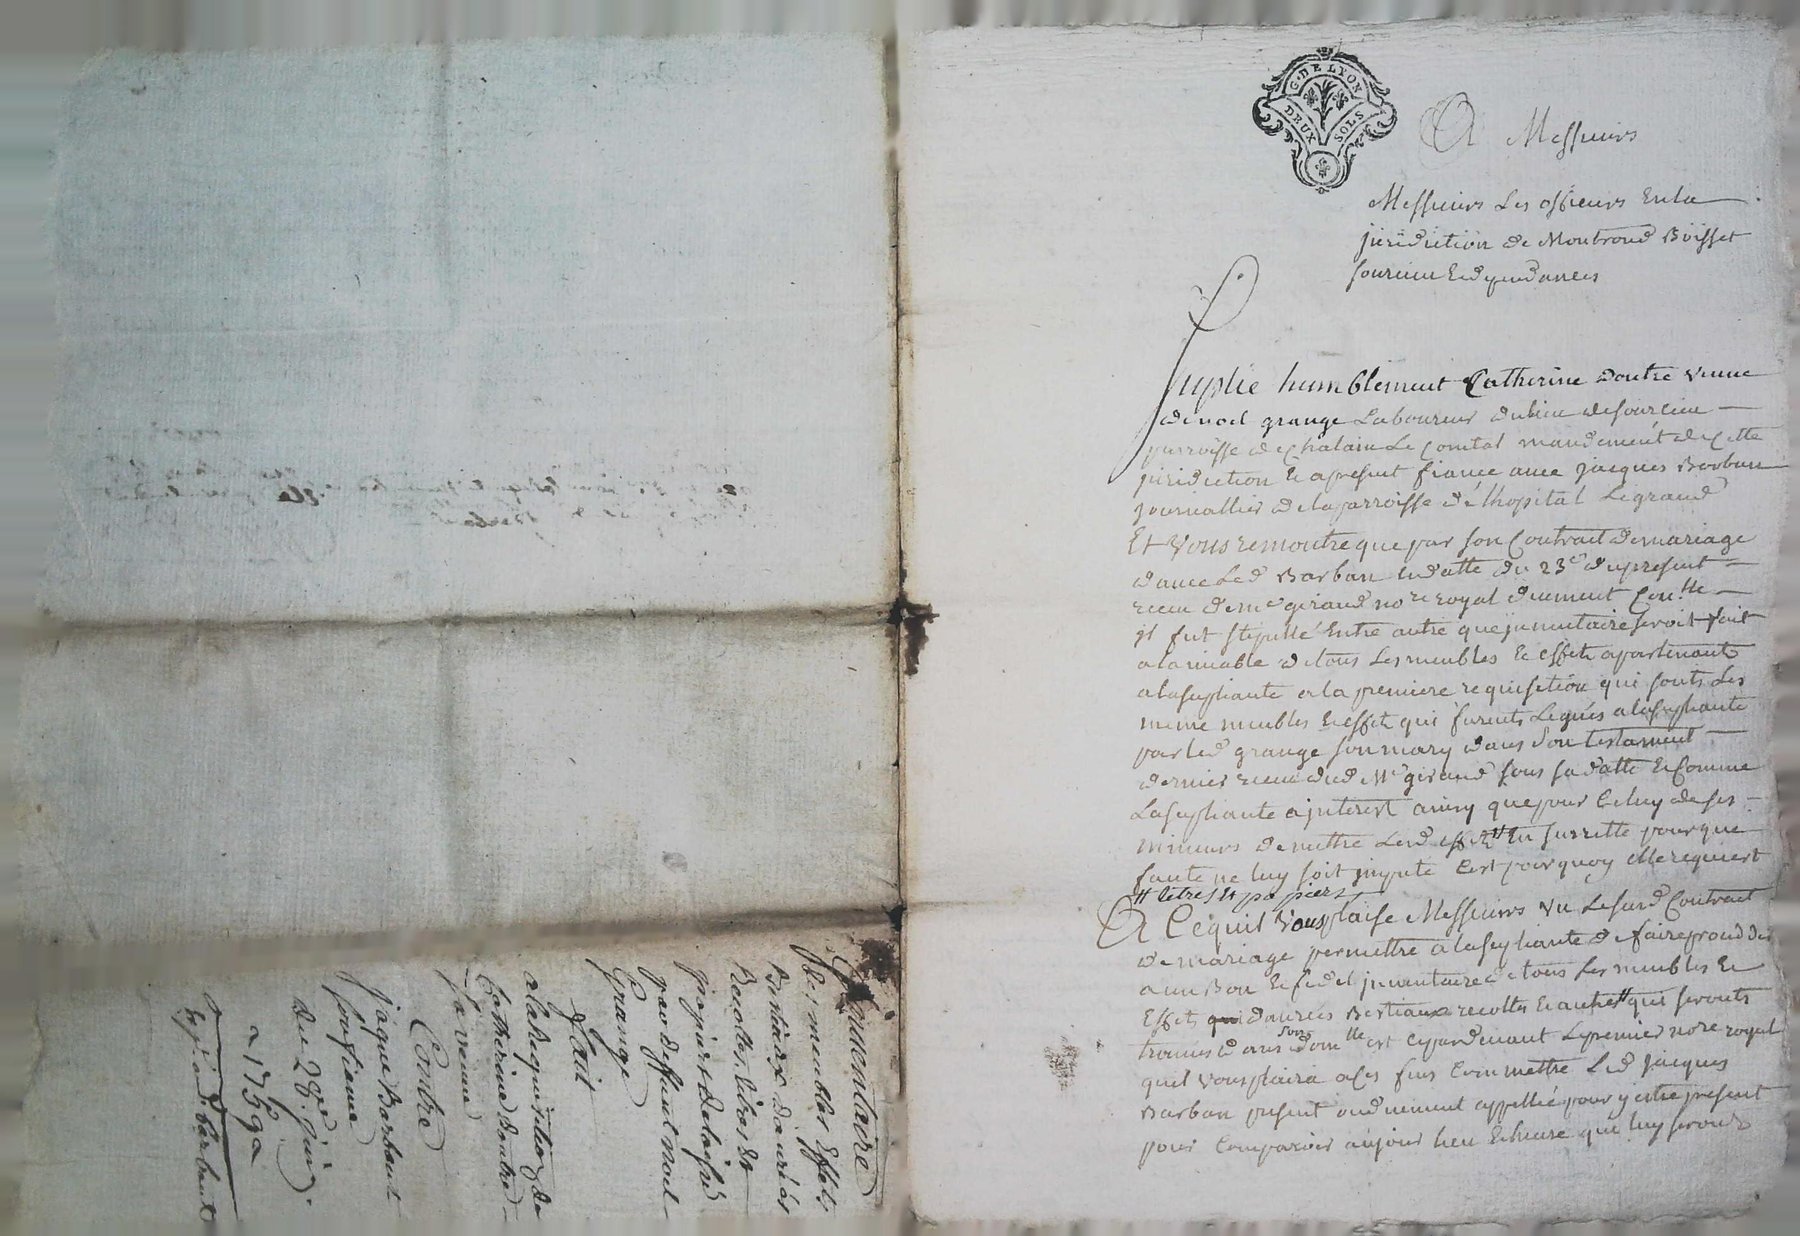 G. DE LYON
DEUX SOLS
A Messieurs
Messieurs Les officiers En la
juridiction de Montrond Boisset
sourcieu & dependances
Suplie humblement Catherine doutre veuve
de noel grange Laboureur du lieu de sourcieu
parroisse de Chalain Le Comtal mandement de Cette
juridiction & a present fiancé avec jacques Barban
journallier de la parroisse de l'hopital Legrand
Et Vous remontre que par son Contrait de mariage
d'avec Led Barban en datte du 23e du present
receu de me giraud nore royal duement Conllé
il fut stipullé Entre autre que jnventaire seroit fait
a lamiable de tous Les meubles & effets apartenants
a la supliante a la premiere requisition qui sonts Les
meme meubles & effets qui furents Legués a la supliante
par led grange son mary dans son testament
dernier receu dud Me giraud sous sa datte & Comme
La supliante a jnterest ainsy que pour Celuy de ses
mineurs de mettre Lesd effets # En surette pour que
faute ne luy soit jmputé C'est pourquoy elle requiert
# litres et papiers
A Cequil Vous plaise Messieurs vu Le susd Contrait
de mariage permettre a la supliante de faire proceder
a un Bon & fidel jnventaire de tous Les meubles &
Effets danrées Bestiaux recoltes & autres # qui seronts
trouvés dans son domlle et cepardevant Le premier nore royal
quil vous plaira a Ces fins Commettre Led jacques
Barban present ou duement appellé pour y estre present
pour Comparoir au jour lieu & heure qui luy seronts
Jnventaire
des meubles Effets
Bestiaux danrées
Recoltes, litres et
papiers delaissé
par deffunt noel
Grange
fait
a la Requisition de
Catherine doutre
sa veuve
Contre
jaque Barbant
son fiancé
du 28e juin
1759